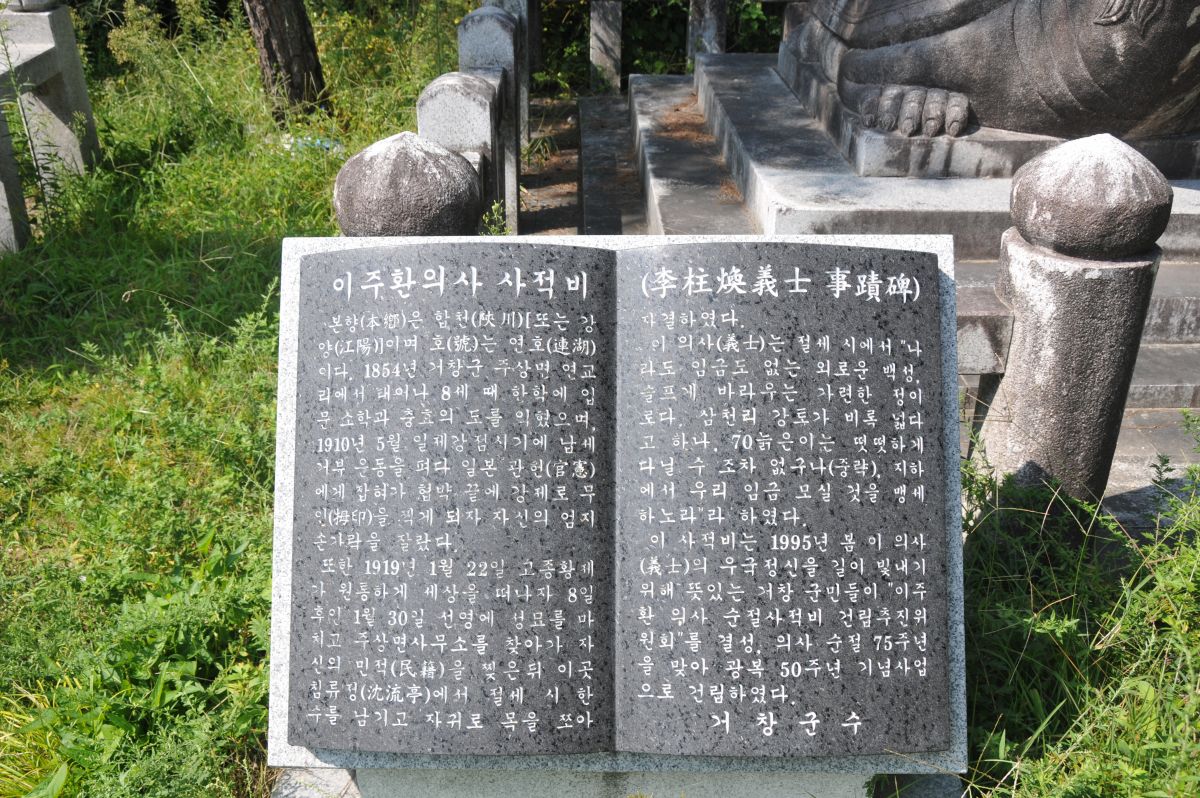 이주환의사 사적비
본향(本鄕)은 합천(陜川)[또는 강
양(江陽)]이며 호(號)는 연호(連湖)
이다. 1854년 거창군 주상면 연교
리에서 태어나 8세 때 하학에 입
문 소학과 충효의 도를 익혔으며,
1910년 5월 일제강점시기에 납세
거부 운동을 펴다 일본 관헌(官憲)
에게 잡혀가 협박 끝에 강제로 무
인(拇印)을 찍게 되자 자신의 엄지
손가락을 잘랐다.
또한 1919년 1월 22일 고종황제
가 원통하게 세상을 떠나자 8일
후인 1월 30일 선영에 성묘를 마
치고 주상면사무소를 찾아가 자
신의 민적(民籍)을 찢은뒤 이곳
침류정(沈流亭)에서 절세 시 한
수를 남기고 자귀로 목을 쪼아
(李柱煥義士 事蹟碑)
자결하였다.
이 의사(義士)는 절세 시에서 "나
라도 임금도 없는 외로운 백성,
슬프게 바라우는 가련한 정이
로다. 삼천리 강토가 비록 넓다
고 하나, 70늙은이는 떳떳하게
다닐 수 조차 없구나(중략), 지하
에서 우리 임금 모실 것을 맹세
하노라"라 하였다.
이 사적비는 1995년 봄 이 의사
(義士)의 우국정신을 길이 빛내기
위해 뜻있는 거창 군민들이 "이주
환 의사 순절사적비 건립추진위
원회"를 결성, 의사 순절 75주년
을 맞아 광복 50주년 기념사업
으로 건립하였다.
거창군수